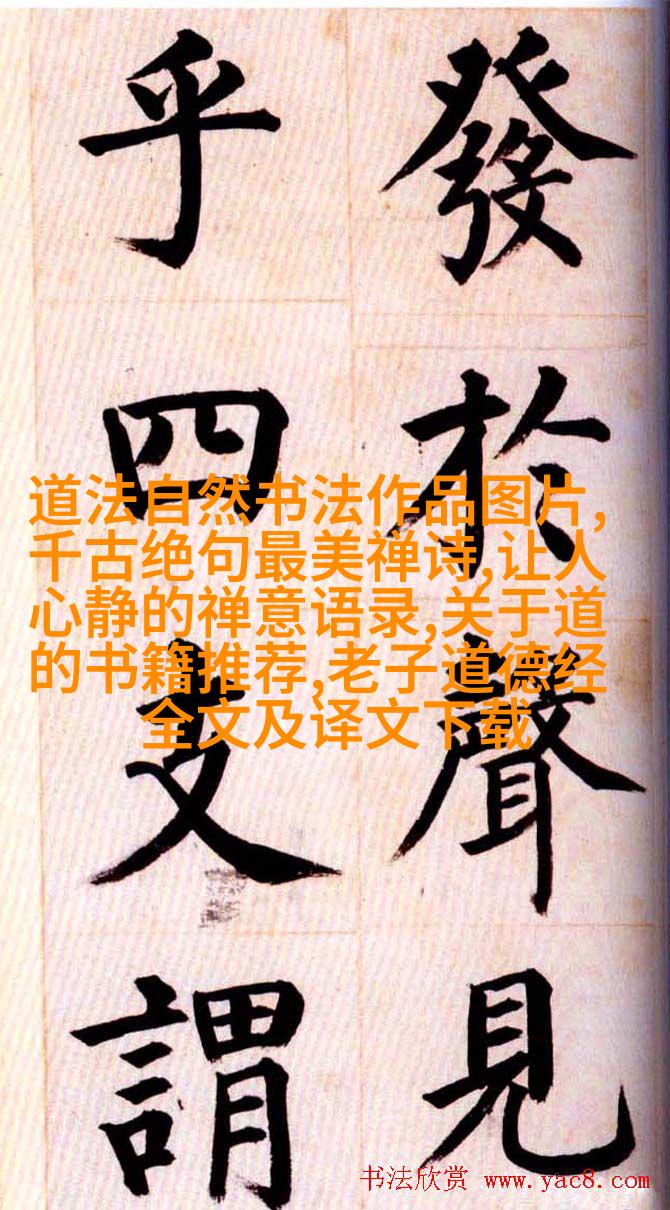 發於聲見
乎四支謂
道法自然书法作品图片,
千古绝句最美禅诗,让人
心静的禅意语录,关于道
的书籍推荐,老子道德经
全文及译文下载
书法欣赏 www.yac8.com